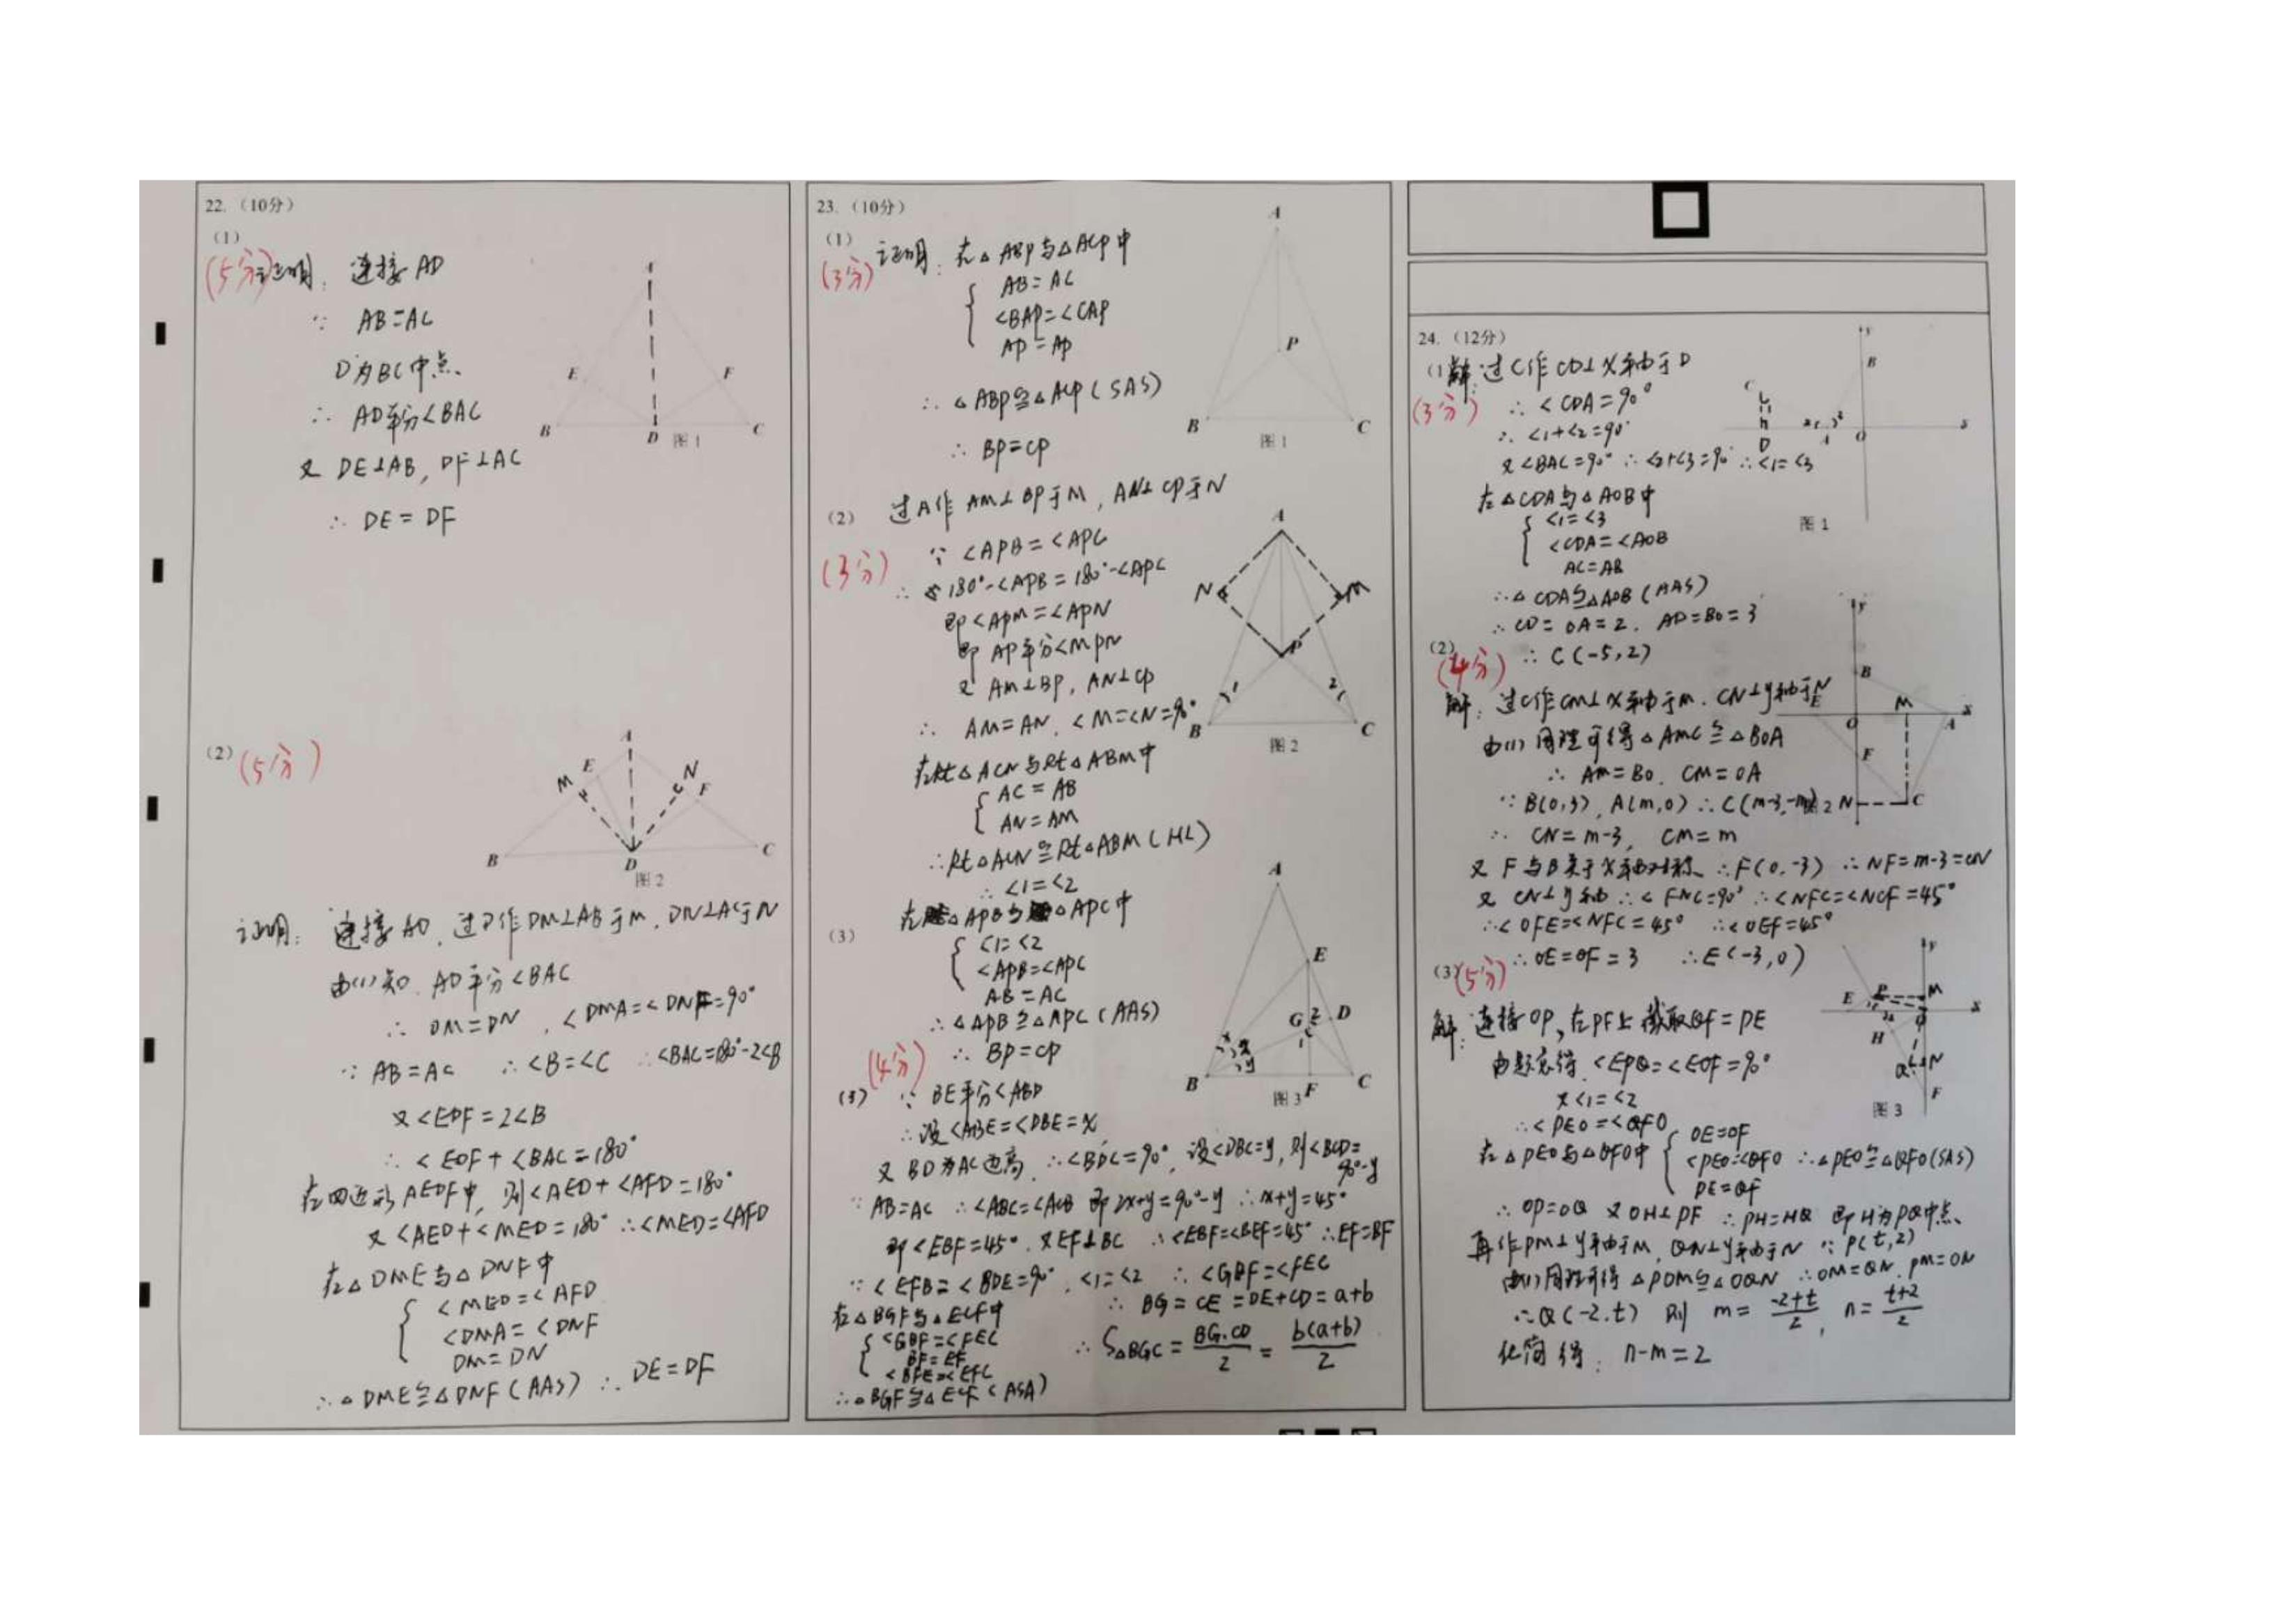 22.（10分）
（1）
(5分)
证明：连接 AD
∵ AB=AC
D为BC中点、
∴ AD平分<BAC
又 DE⊥AB, DF⊥AC
∴ DE = DF
E
F
B
D
C
图1
（2）
(5分)
A
E
M
N
F
B
D
C
图2
证明：连接AD, 过D作DM⊥AB于M, DN⊥AC于N
由(1)知 AD平分<BAC
∴ DM=DN , <DMA=<DNF=90°
∵ AB=AC ∴<B=<C ∴<BAC=180°-2<B
又<EDF=2<B
∴ <EDF+<BAC=180°
在四边形AEDF中, 则<AED+<AFD=180°
又<AED+<MED=180° ∴<MED=<AFD
在△DME与△DNF中
<MED=<AFD
<DMA=<DNF
DM=DN
∴△DME≌△DNF(AAS) ∴ DE=DF
23.（10分）
（1）
(3分)
证明：在△ABP与△ACP中
AB=AC
<BAP=<CAP
AP=AP
∴ △ABP≌△ACP(SAS)
∴ BP=CP
A
P
B
C
图1
（2）
(3分)
过A作 AM⊥BP于M, AN⊥CP于N
∵ <APB=<APC
∴ 180°-<APB=180°-<APC
即<APM=<APN
即 AP平分<MPN
又 AM⊥BP, AN⊥CP
∴ AM=AN, <M=<N=90°
在Rt△ACN与Rt△ABM中
AC=AB
AN=AM
∴Rt△ACN≌Rt△ABM(HL)
∴ <1=<2
在△APB与△APC中
<1=<2
<APB=<APC
AB=AC
∴△APB≌△APC(AAS)
∴ BP=CP
A
N
M
P
1
2
B
C
图2
（3）
(4分)
(3) ∵ BE平分<ABD
∴设<ABE=<DBE=x
又 BD为AC边高, ∴<BDC=90°, 设<DBC=y, 则<BCD=
90°-y
∵ AB=AC ∴<ABC=<ACB 即2x+y=90°-y ∴x+y=45°
即<EBF=45°, 又EF⊥BC ∴<EBF=<BEF=45° ∴EF=BF
∵ <EFB=<BDE=90°, <1=<2 ∴<GBF=<FEC
在△BGF与△ECF中
<GBF=<FEC
BF=EF
<BFE=<EFC
∴△BGF≌△ECF(ASA)
∴ BG=CE=DE+CD=a+b
∴ S△BGC = BG·CD/2 = b(a+b)/2
A
E
G
2
D
1
x
x
y
B
F
C
图3
24.（12分）
（1）
(3分)
解：过C作CD⊥X轴于D
∴ <CDA=90°
∴ <1+<2=90°
又<BAC=90° ∴<2+<3=90° ∴<1=<3
在△CDA与△AOB中
<1=<3
<CDA=<AOB
AC=AB
∴△CDA≌△AOB(AAS)
∴ CD=OA=2, AD=BO=3
∴ C(-5,2)
y
B
C
D
A
O
x
图1
（2）
(4分)
解：过C作CM⊥X轴于M, CN⊥y轴于N
由(1)同理可得△AMC≌△BOA
∴ AM=BO, CM=OA
∵B(0,3), A(m,0) ∴C(m-3,-m)
∴ CN=m-3, CM=m
又 F与B关于X轴对称、∴F(0,-3) ∴NF=m-3=CN
又 CN⊥y轴 ∴<FNC=90° ∴<NFC=<NCF=45°
∴<OFE=<NFC=45° ∴<OEF=45°
∴OE=OF=3 ∴E(-3,0)
y
B
E
O
M
A
x
F
N
C
图2
（3）
(5分)
解：连接OP, 在PF上截取QF=PE
由题意得, <EPQ=<EOF=90°
又<1=<2
∴<PEO=<QFO
在△PEO与△QFO中
OE=OF
<PEO=<QFO
PE=QF
∴△PEO≌△QFO(SAS)
∴ OP=OQ 又OH⊥PF ∴PH=HQ 即H为PQ中点、
再作PM⊥y轴于M, QN⊥y轴于N ∵P(t,2)
由(1)同理可得△POM≌△OQN ∴OM=QN, PM=ON
∴Q(-2,t) 则 m=(-2+t)/2, n=(t+2)/2
化简得: n-m=2
y
E
P
M
x
O
H
Q
N
F
图3